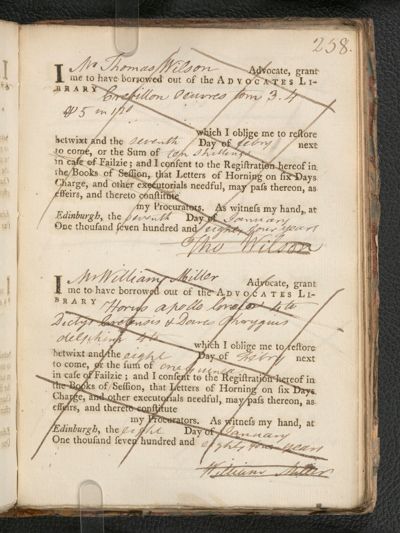 258.
I Mr Thomas Wilson Advocate, grant
me to have borrowed out of the ADVOCATES LI-
BRARY Crebillon oeuvres tom 3. 4
& 5 in 12º
which I oblige me to restore
betwixt and the seventh Day of febry next
to come, or the Sum of ten shillings
in caſe of Failzie; and I conſent to the Regiſtration hereof in
the Books of Seſſion, that Letters of Horning on ſix Days
Charge, and other executorials needful, may paſs thereon, as
effeirs, and thereto conſtitute
my Procurators. As witneſs my hand, at
Edinburgh, the seventh Day of January
One thouſand ſeven hundred and eighty four years
Tho Wilson
I Mr William Miller Advocate, grant
me to have borrowed out of the ADVOCATES LI-
BRARY Horus apollo 4to
Dictys Cretensis & Dares Phrygius
delphini 4to
which I oblige me to reſtore
betwixt and the eight Day of febry next
to come, or the ſum of one guinea
in caſe of Failzie; and I conſent to the Regiſtration hereof in
the Books of Seſſion, that Letters of Horning on ſix Days
Charge, and other executorials needful, may paſs thereon, as
effeirs, and thereto conſtitute
my Procurators. As witneſs my hand, at
Edinburgh, the eight Day of January
One thouſand ſeven hundred and eighty four years
William Miller